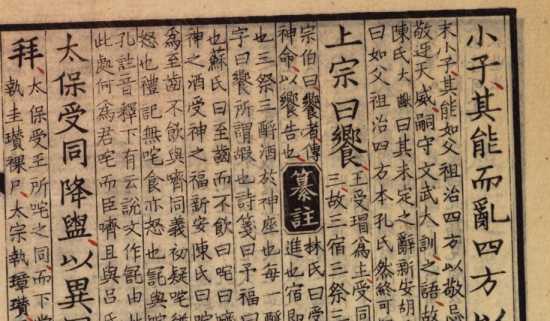 小子其能而亂四方以
末小子其能如父祖治四方以敬忌
敬迓天威嗣守文武大訓之語故
陳氏大猷曰其未定之辭新安胡
曰如父祖治四方本孔氏然終可
上宗曰饗
王受瑁爲主受同
三故三宿三祭三
宗伯曰饗者傳
神命以饗告也
纂註
林氏曰受
進也宿即
也三祭三酹酒於神座也每一
字曰饗所謂嘏也詩箋曰予福
也蘇氏曰至齒而不飲曰咤曰嚌
神之酒受神之福新安陳氏曰咤
爲至齒不飲與嚌同義初疑咤
怒也禮記無咤食亦怒也記與咤
孔註音釋下有云說文作詫由
此處何爲君咤而臣嚌且與呂氏
太保受同降盥以異
太保受王所咤之同而下堂
拜
執圭瓚祼尸太宗執璋瓚